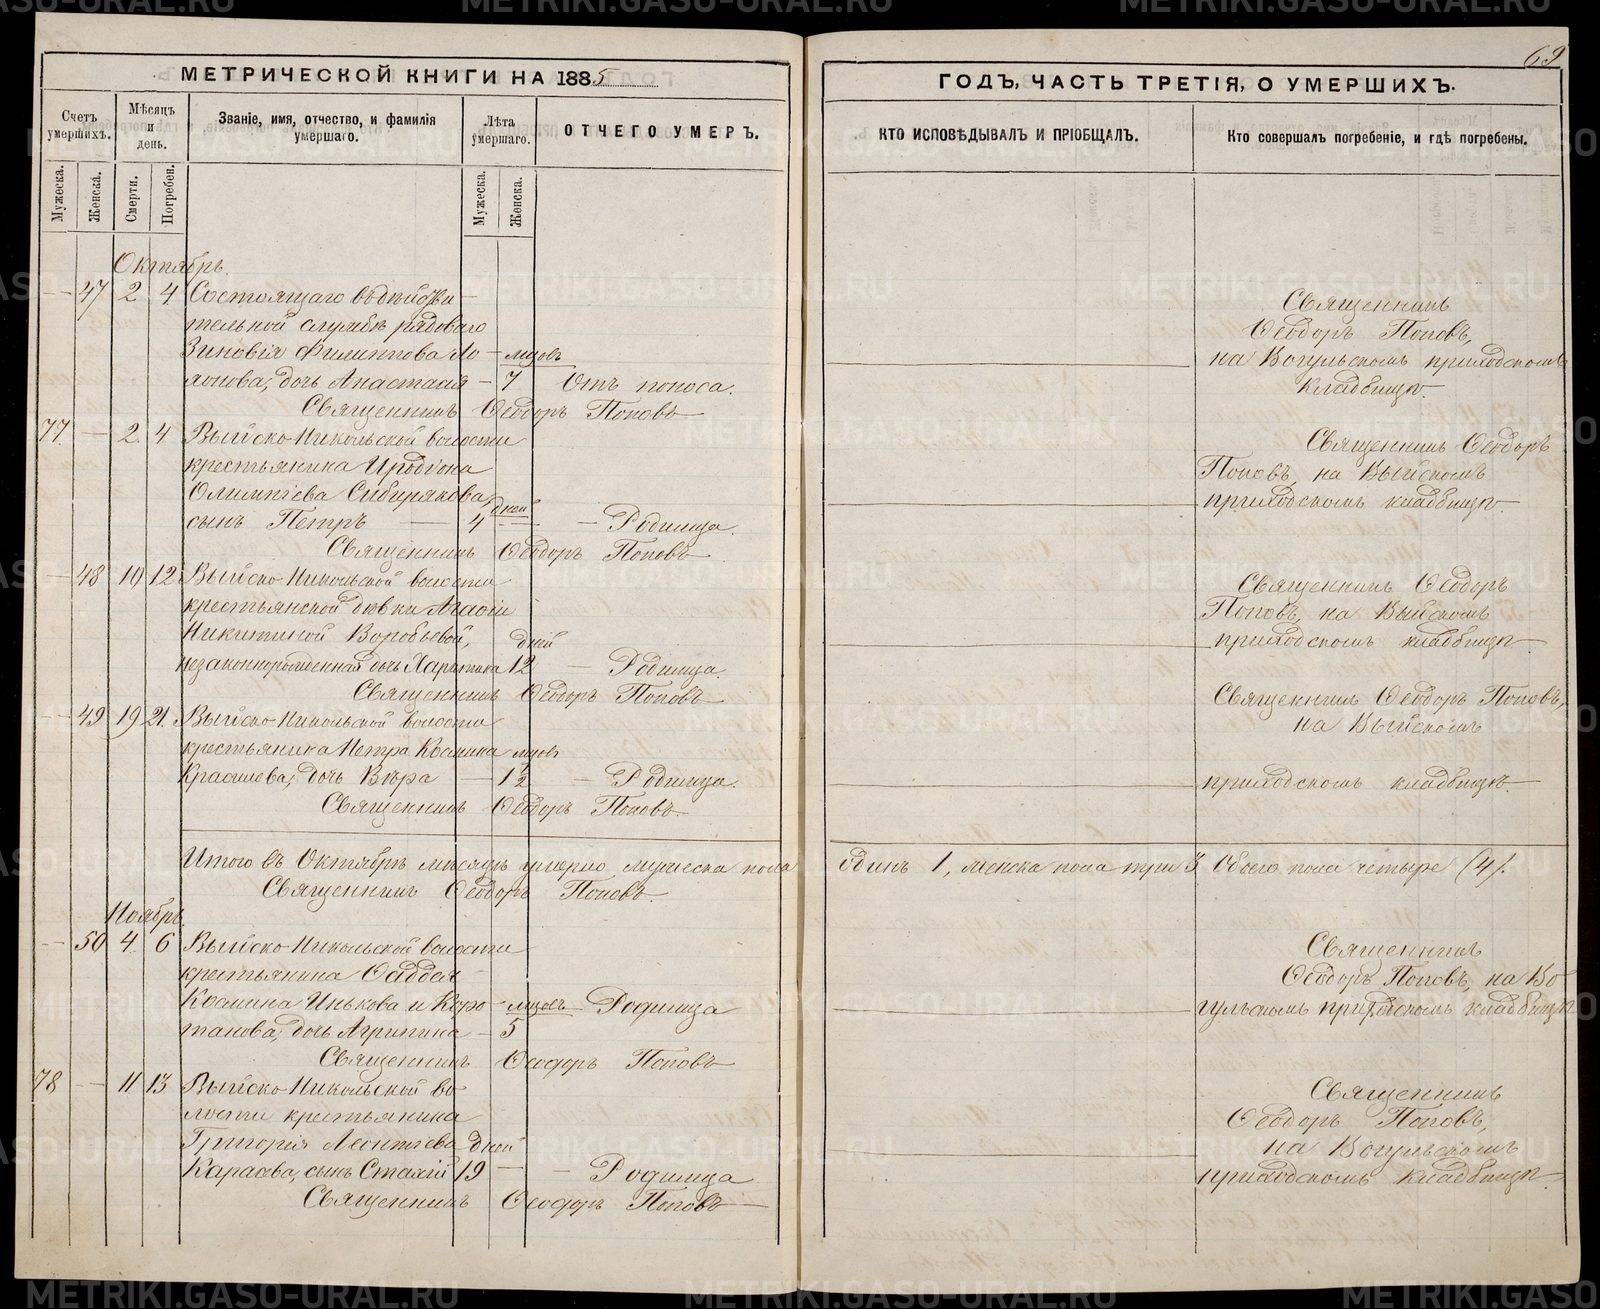 69
МЕТРИЧЕСКОЙ КНИГИ НА 1885
ГОДЪ, ЧАСТЬ ТРЕТІЯ, О УМЕРШИХЪ.
Счетъ умершихъ.
Мѣсяцъ и день.
Званіе, имя, отчество, и фамилія умершаго.
Лѣта умершаго.
ОТЧЕГО УМЕРЪ.
КТО ИСПОВѢДЫВАЛЪ И ПРІОБЩАЛЪ.
Кто совершалъ погребеніе, и гдѣ погребены.
Мужеска.
Женска.
Смерти.
Погребен.
Мужеска.
Женска.
Октябрь.
47 2 4 Состоящаго въ дѣйстви
тельной службѣ рядоваго
Зиновія Филиппова Ло мцовъ
дочь Анастасія 7 Отъ поноса.
Священникъ Ѳеодоръ Поповъ
Священникъ
Ѳеодоръ Поповъ,
на Вогульскомъ приходскомъ
кладбищѣ.
77 2 4 Выйско-Никольской волости
крестьянина Иродіона
Олимпіева Сибирякова, дней
сынъ Петръ 4 Родимца.
Священникъ Ѳеодоръ Поповъ
Священникъ Ѳеодоръ
Поповъ, на Выйскомъ
приходскомъ кладбищѣ.
48 10 12 Выйско-Никольской волости
крестьянской дѣвки Агафіи
Никитиной Воробьевой, дней
незаконнорожденная дочь Харитина 12 Родимца.
Священникъ Ѳеодоръ Поповъ
Священникъ Ѳеодоръ
Поповъ, на Выйскомъ
приходскомъ кладбищѣ.
49 19 21. Выйско-Никольской волости
крестьянина Петра Космина мцовъ
дочь Вѣра 1½ Родимца.
Священникъ Ѳеодоръ Поповъ
Священникъ Ѳеодоръ Поповъ,
на Выйскомъ
приходскомъ кладбищѣ.
Итого въ Октябрѣ мѣсяцѣ умерло мужеска пола одинъ 1, женска пола три 3 Обоего пола четыре (4).
Священникъ Ѳеодоръ Поповъ.
Ноябрь.
50 4 6 Выйско-Никольской волости
крестьянина Ѳаддея
Космина Инькова и Коро мцовъ Родимца
танова, дочь Агрипина 5
Священникъ Ѳеодоръ Поповъ
Священникъ
Ѳеодоръ Поповъ, на Во
гульскомъ приходскомъ кладбищѣ
78 11 13 Выйско-Никольской во
лости крестьянина
Григорія Леонтіева дней
Карасева, сынъ 19 Родимца
Священникъ Ѳеодоръ Поповъ
Священникъ
Ѳеодоръ Поповъ,
на Вогульскомъ
приходскомъ кладбищѣ.
METRIKI.GASO-URAL.RU